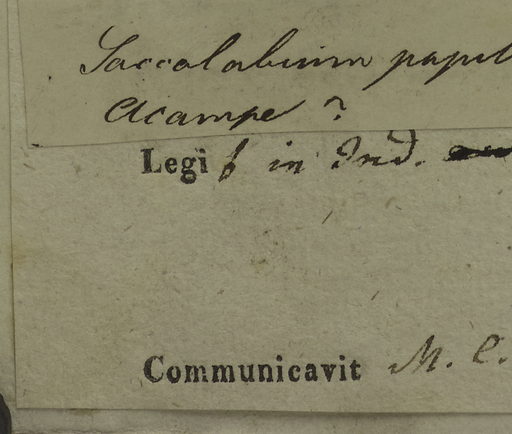 Saccolabium papil
Acampe ?
Legi in Ind.
Communicavit M. C.